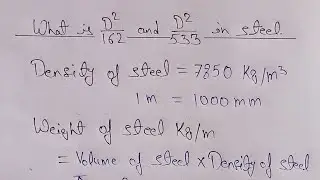 What is D²/162 and D²/533 in steel.
Density of steel = 7850 Kg/m³
1 m = 1000 mm
Weight of steel Kg/m
= Volume of steel x Density of steel